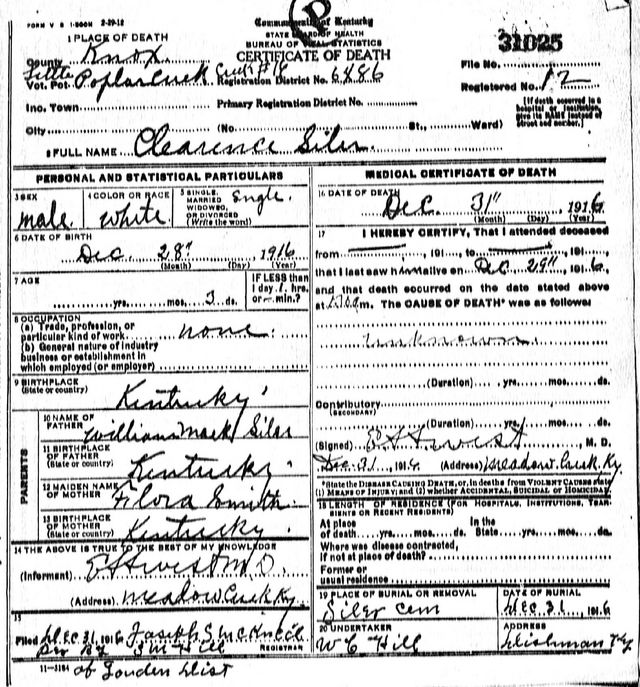 FORM V S 1-500M 2-29-12
Commonwealth of Kentucky
STATE BOARD OF HEALTH
BUREAU OF VITAL STATISTICS
CERTIFICATE OF DEATH
31025
1 PLACE OF DEATH
County Knox
Vot. Pct. Little Poplar Creek
Registration District No. 6886
File No.
Registered No. 12
Inc. Town
Primary Registration District No.
[If death occurred in a hospital or institution, give its NAME instead of street and number.]
City (No. St., Ward)
2 FULL NAME Clearence Siler
PERSONAL AND STATISTICAL PARTICULARS
3 SEX
male
4 COLOR OR RACE
white
5 SINGLE, MARRIED WIDOWED, OR DIVORCED (Write the word)
Single.
6 DATE OF BIRTH
Dec. 28", 1916
(Month) (Day) (Year)
7 AGE
yrs. mos. 3 ds.
IF LESS than 1 day, hrs. or min.?
8 OCCUPATION
(a) Trade, profession, or particular kind of work none
(b) General nature of industry business or establishment in which employed (or employer)
9 BIRTHPLACE (State or country)
Kentucky
PARENTS
10 NAME OF FATHER
William Mack Siler
11 BIRTHPLACE OF FATHER (State or country)
Kentucky
12 MAIDEN NAME OF MOTHER
Flora Smith
13 BIRTHPLACE OF MOTHER (State or country)
Kentucky
14 THE ABOVE IS TRUE TO THE BEST OF MY KNOWLEDGE
(Informant) M.D.
(Address) Meadow Creek Ky.
15
Filed DEC 31, 1916 Joseph S.
REGISTRAR
J M Hill
11-3184 of Louden Dist
MEDICAL CERTIFICATE OF DEATH
16 DATE OF DEATH
Dec. 31", 1916
(Month) (Day) (Year)
17 I HEREBY CERTIFY, That I attended deceased
from , 191 , to , 191 ,
that I last saw him alive on Dec 29", 1916,
and that death occurred on the date stated above
at m. The CAUSE OF DEATH* was as follows:
Unknown.
(Duration) yrs. mos. ds.
Contributory
(SECONDARY)
(Duration) yrs. mos. ds.
(Signed) M. D.
Dec. 31, 1916 (Address) Meadow Creek Ky.
*State the DISEASE CAUSING DEATH, or, in deaths from VIOLENT CAUSES state (1) MEANS OF INJURY; and (2) whether ACCIDENTAL, SUICIDAL or HOMICIDAL.
18 LENGTH OF RESIDENCE (FOR HOSPITALS, INSTITUTIONS, TRANSIENTS OR RECENT RESIDENTS)
At place of death yrs. mos. ds. In the State yrs. mos. ds.
Where was disease contracted, if not at place of death?
Former or usual residence
19 PLACE OF BURIAL OR REMOVAL
Siler Cem
DATE OF BURIAL
DEC 31, 1916
20 UNDERTAKER
W C Hill
ADDRESS
Dishman Ky